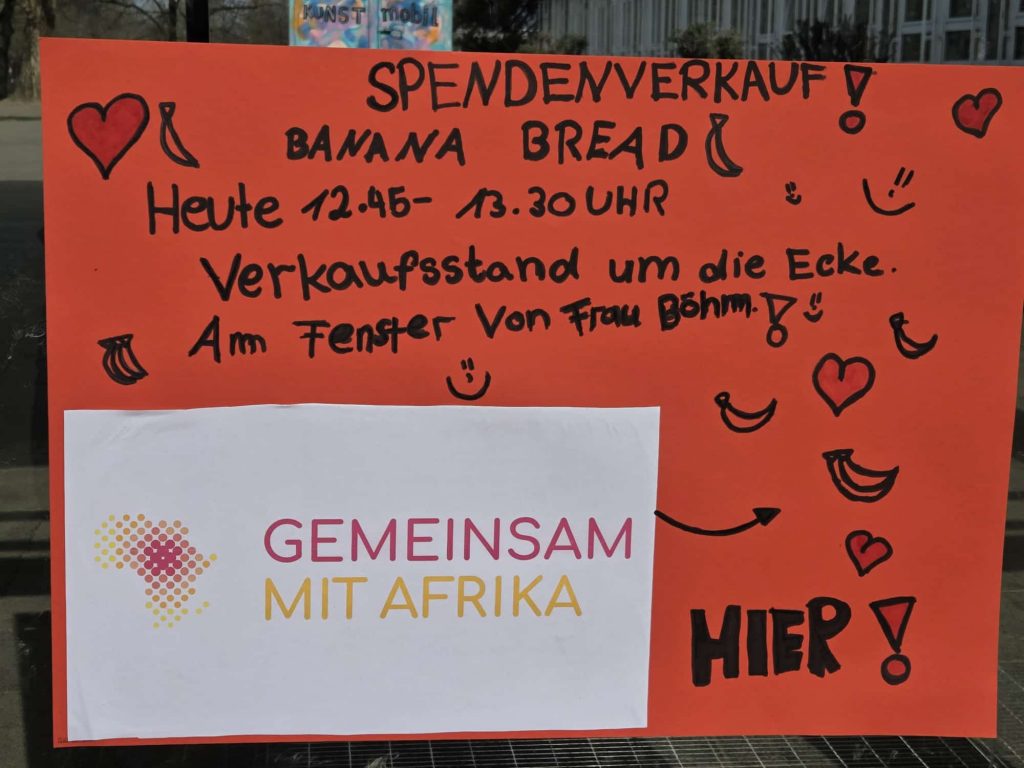 KUNST mobil
SPENDENVERKAUF!
BANANA BREAD
Heute 12.45- 13.30 UHR
Verkaufsstand um die Ecke.
Am Fenster von Frau Böhm.!
GEMEINSAM
MIT AFRIKA
HIER!